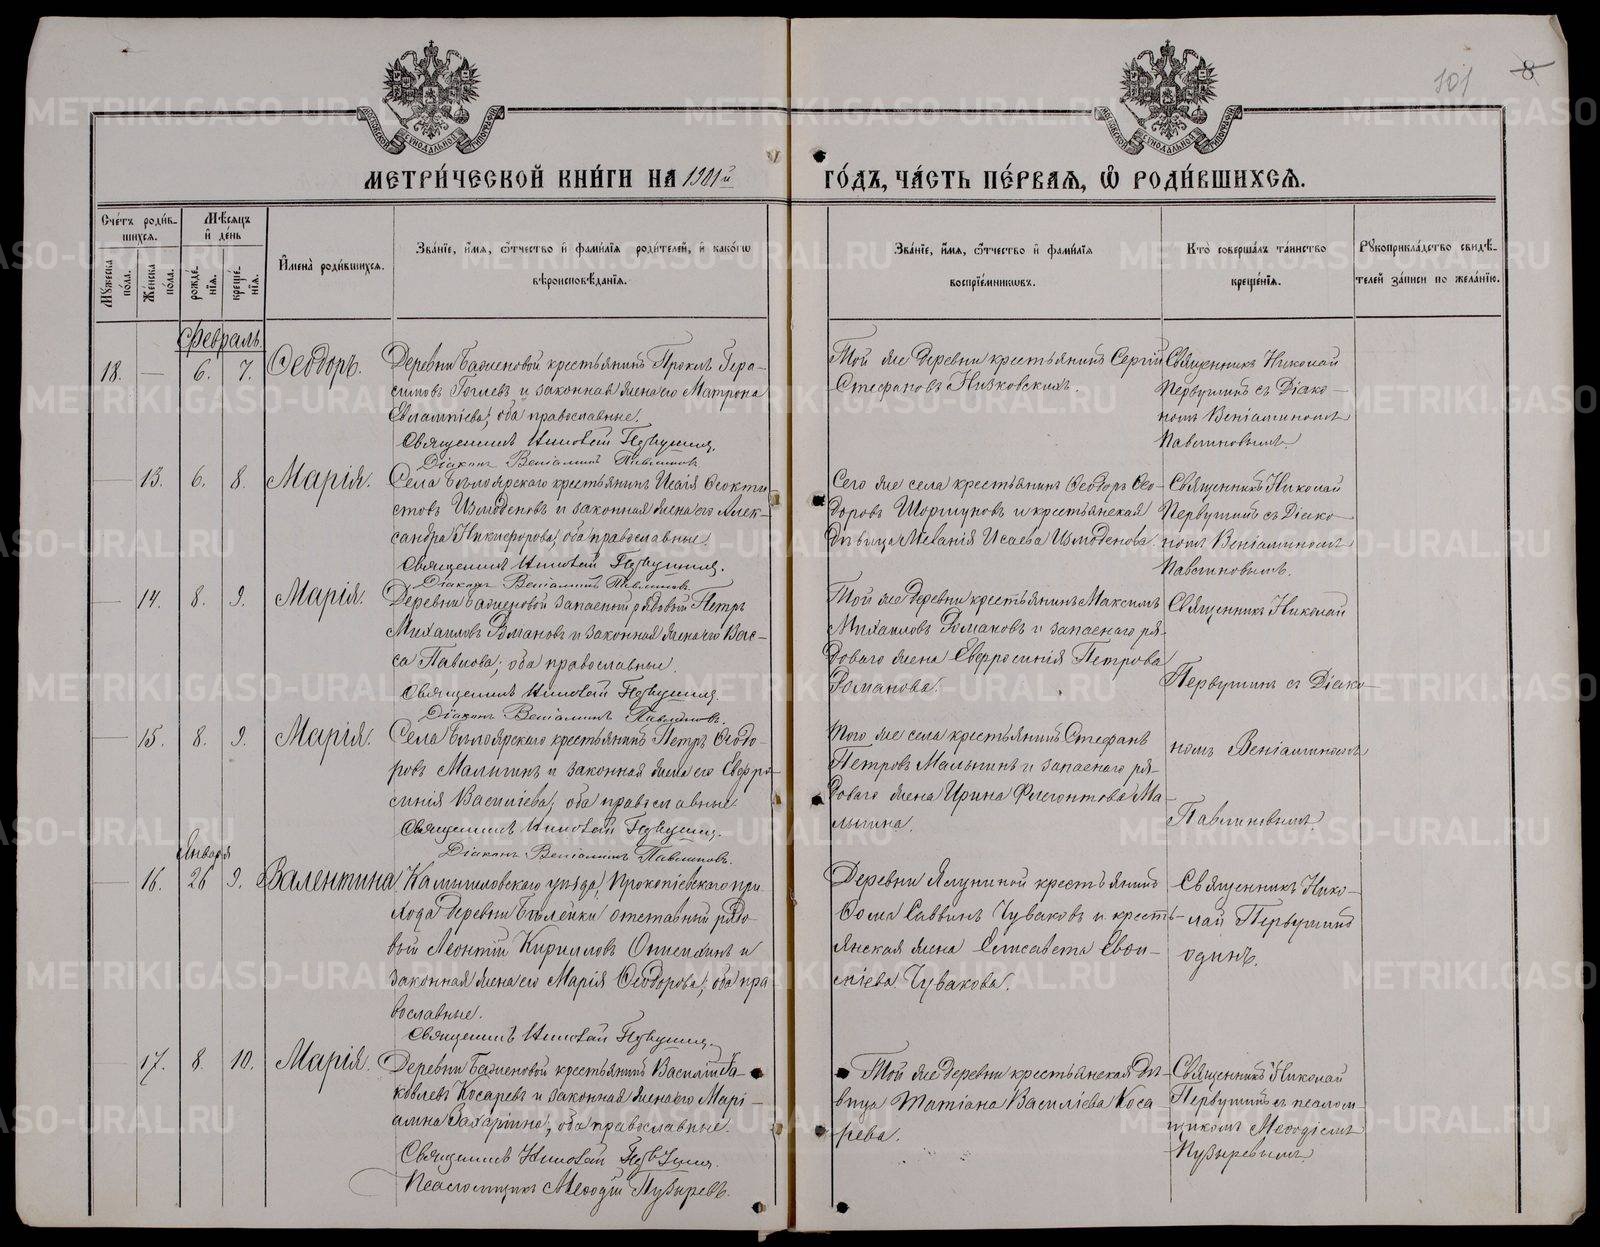 101
8
МЕТРИ́ЧЕСКОЙ КНИ́ГИ НА 1901й
ГО́ДЪ, ЧА́СТЬ ПЕ́РВАѦ, Ѽ РОДИ́ВШИХСѦ.
Сче́тъ роди́в-
шихсѧ.
Мꙋ́жеска по́ла.
Же́нска по́ла.
Мѣ́сѧцъ
и҆ де́нь
рожде́-
нїѧ.
креще́-
нїѧ.
И҆мена̀ роди́вшихсѧ.
Зва́нїе, и҆́мѧ, ѻ҆́тчество и҆ фами́лїѧ роди́телей, и҆ како́гѡ
вѣроисповѣ́данїѧ.
Зва́нїе, и҆́мѧ, ѻ҆́тчество и҆ фами́лїѧ
воспрїе́мниковъ.
Кто̀ соверша́лъ та́инство
креще́нїѧ.
Рꙋкоприкла́дство свидѣ́-
телей за́писи по жела́нїю.
Февраль
18. — 6. 7. Ѳеодоръ.
Деревни Баженовой крестьянинъ Проклъ Гера-
симовъ и законная жена его Матрона
Евлампіева; оба православные.
Священникъ Николай Первушинъ.
Діаконъ Веніаминъ Павлиновъ
Той же деревни крестьянинъ Сергій
Стефановъ Низковскихъ.
Священникъ Николай
Первушинъ съ Діако-
номъ Веніаминомъ
Павлиновымъ
— 13. 6. 8. Марія.
Села Бѣлоярскаго крестьянинъ Исаія Ѳеокти-
стовъ Измоденовъ и законная жена его Алек-
сандра Никифорова; оба православные.
Священникъ Николай Первушинъ.
Діаконъ Веніаминъ Павлиновъ
Сего же села крестьянинъ Ѳеодоръ Ѳео-
доровъ Шоршуновъ и крестьянская
дѣвица Меланія Исаева Измоденова.
Священникъ Николай
Первушинъ съ Діако-
номъ Веніаминомъ
Павлиновымъ.
— 14. 8. 9. Марія.
Деревни Баженовой запасный рядовый Петръ
Михаиловъ Романовъ и законная жена его Вас-
са Павлова; оба православные.
Священникъ Николай Первушинъ.
Діаконъ Веніаминъ Павлиновъ.
Той же деревни крестьянинъ Максимъ
Михаиловъ Романовъ и запаснаго ря-
доваго жена Евфросинія Петрова
Романова.
Священникъ Николай
Первушинъ съ Діако-
— 15. 8. 9. Марія.
Села Бѣлоярскаго крестьянинъ Петръ Ѳеодо-
ровъ Малыгинъ и законная жена его Евфро-
синія Василіева; оба православные.
Священникъ Николай Первушинъ.
Діаконъ Веніаминъ Павлиновъ.
Того же села крестьянинъ Стефанъ
Петровъ Малыгинъ и запаснаго ря-
доваго жена Ирина Флегонтова Ма-
лыгина.
номъ Веніаминомъ
Павлиновымъ.
Января
— 16. 26 9. Валентина
Камышловскаго уѣзда, Прокопіевскаго при-
хода деревни Бѣлейки отставный рядо-
вый Леонтій Кирилловъ и
законная жена его Марія Ѳеодорова; оба пра
вославные.
Священникъ Николай Первушинъ.
Деревни Ялуниной крестьянинъ
Ѳома Саввинъ Чуваковъ и кресть-
янская жена Елисавета Евѳи-
міева Чувакова.
Священникъ Нико-
лай Первушинъ
одинъ.
— 17. 8. 10. Марія.
Деревни Баженовой крестьянинъ Василій Іа-
ковлевъ Косаревъ и законная жена его Марі-
амна Захаріина; оба православные.
Священникъ Николай Первушинъ.
Псаломщикъ Меѳодій Пузыревъ.
Той же деревни крестьянская дѣ-
вица Татіана Василіева Коса-
рева.
Священникъ Николай
Первушинъ съ псалом-
щикомъ Меѳодіемъ
Пузыревымъ.